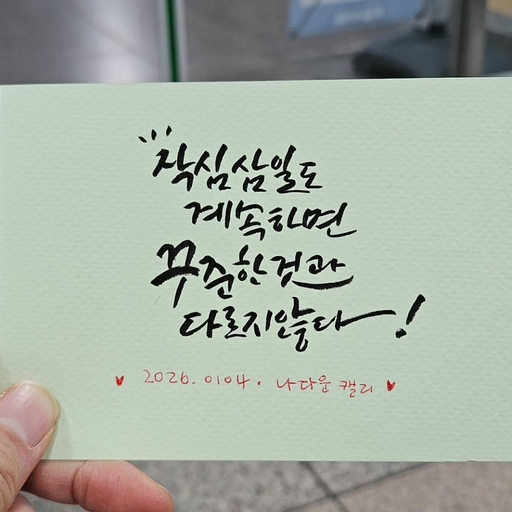 작심삼일도
계속하면
꾸준한것과
다르지않다!
♥ 2026.0104. 나다운 캘리 ♥